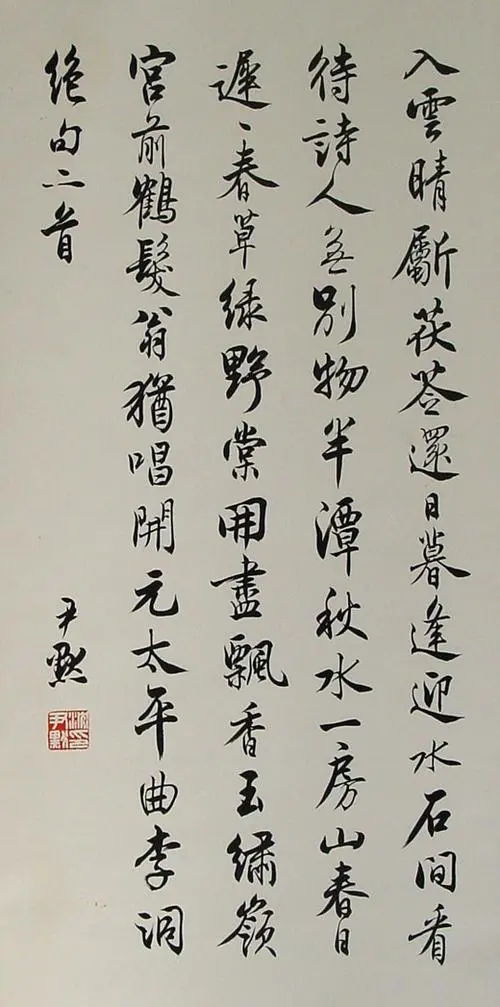 入雲晴斸茯苓還日暮逢迎水石間看
待詩人無別物半潭秋水一房山春日
遲〻春草綠野棠開盡飄香玉繡嶺
宮前鶴髮翁猶唱開元太平曲李洞
絕句二首
尹默
沈印尹默